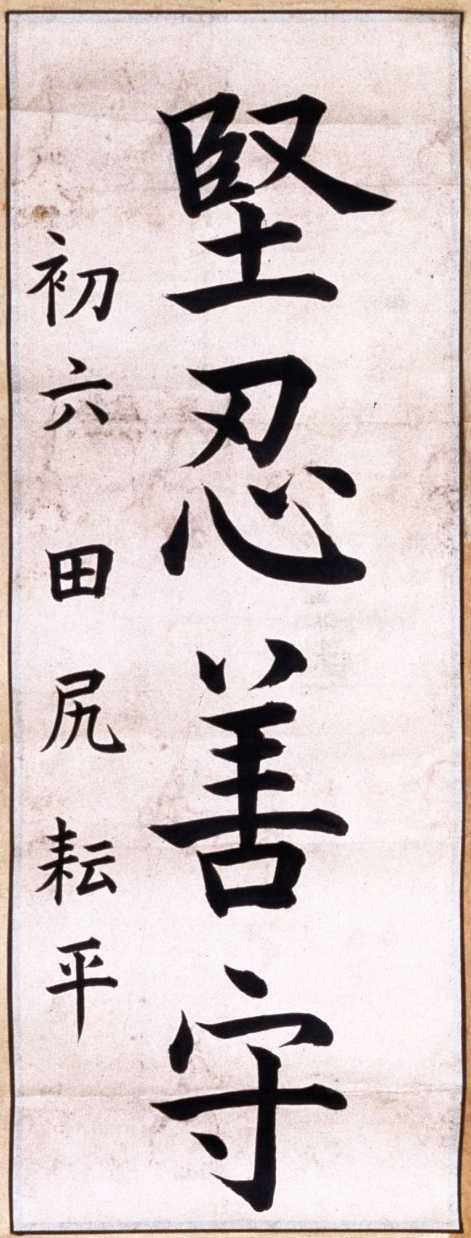 堅忍善守
初六 田尻耘平